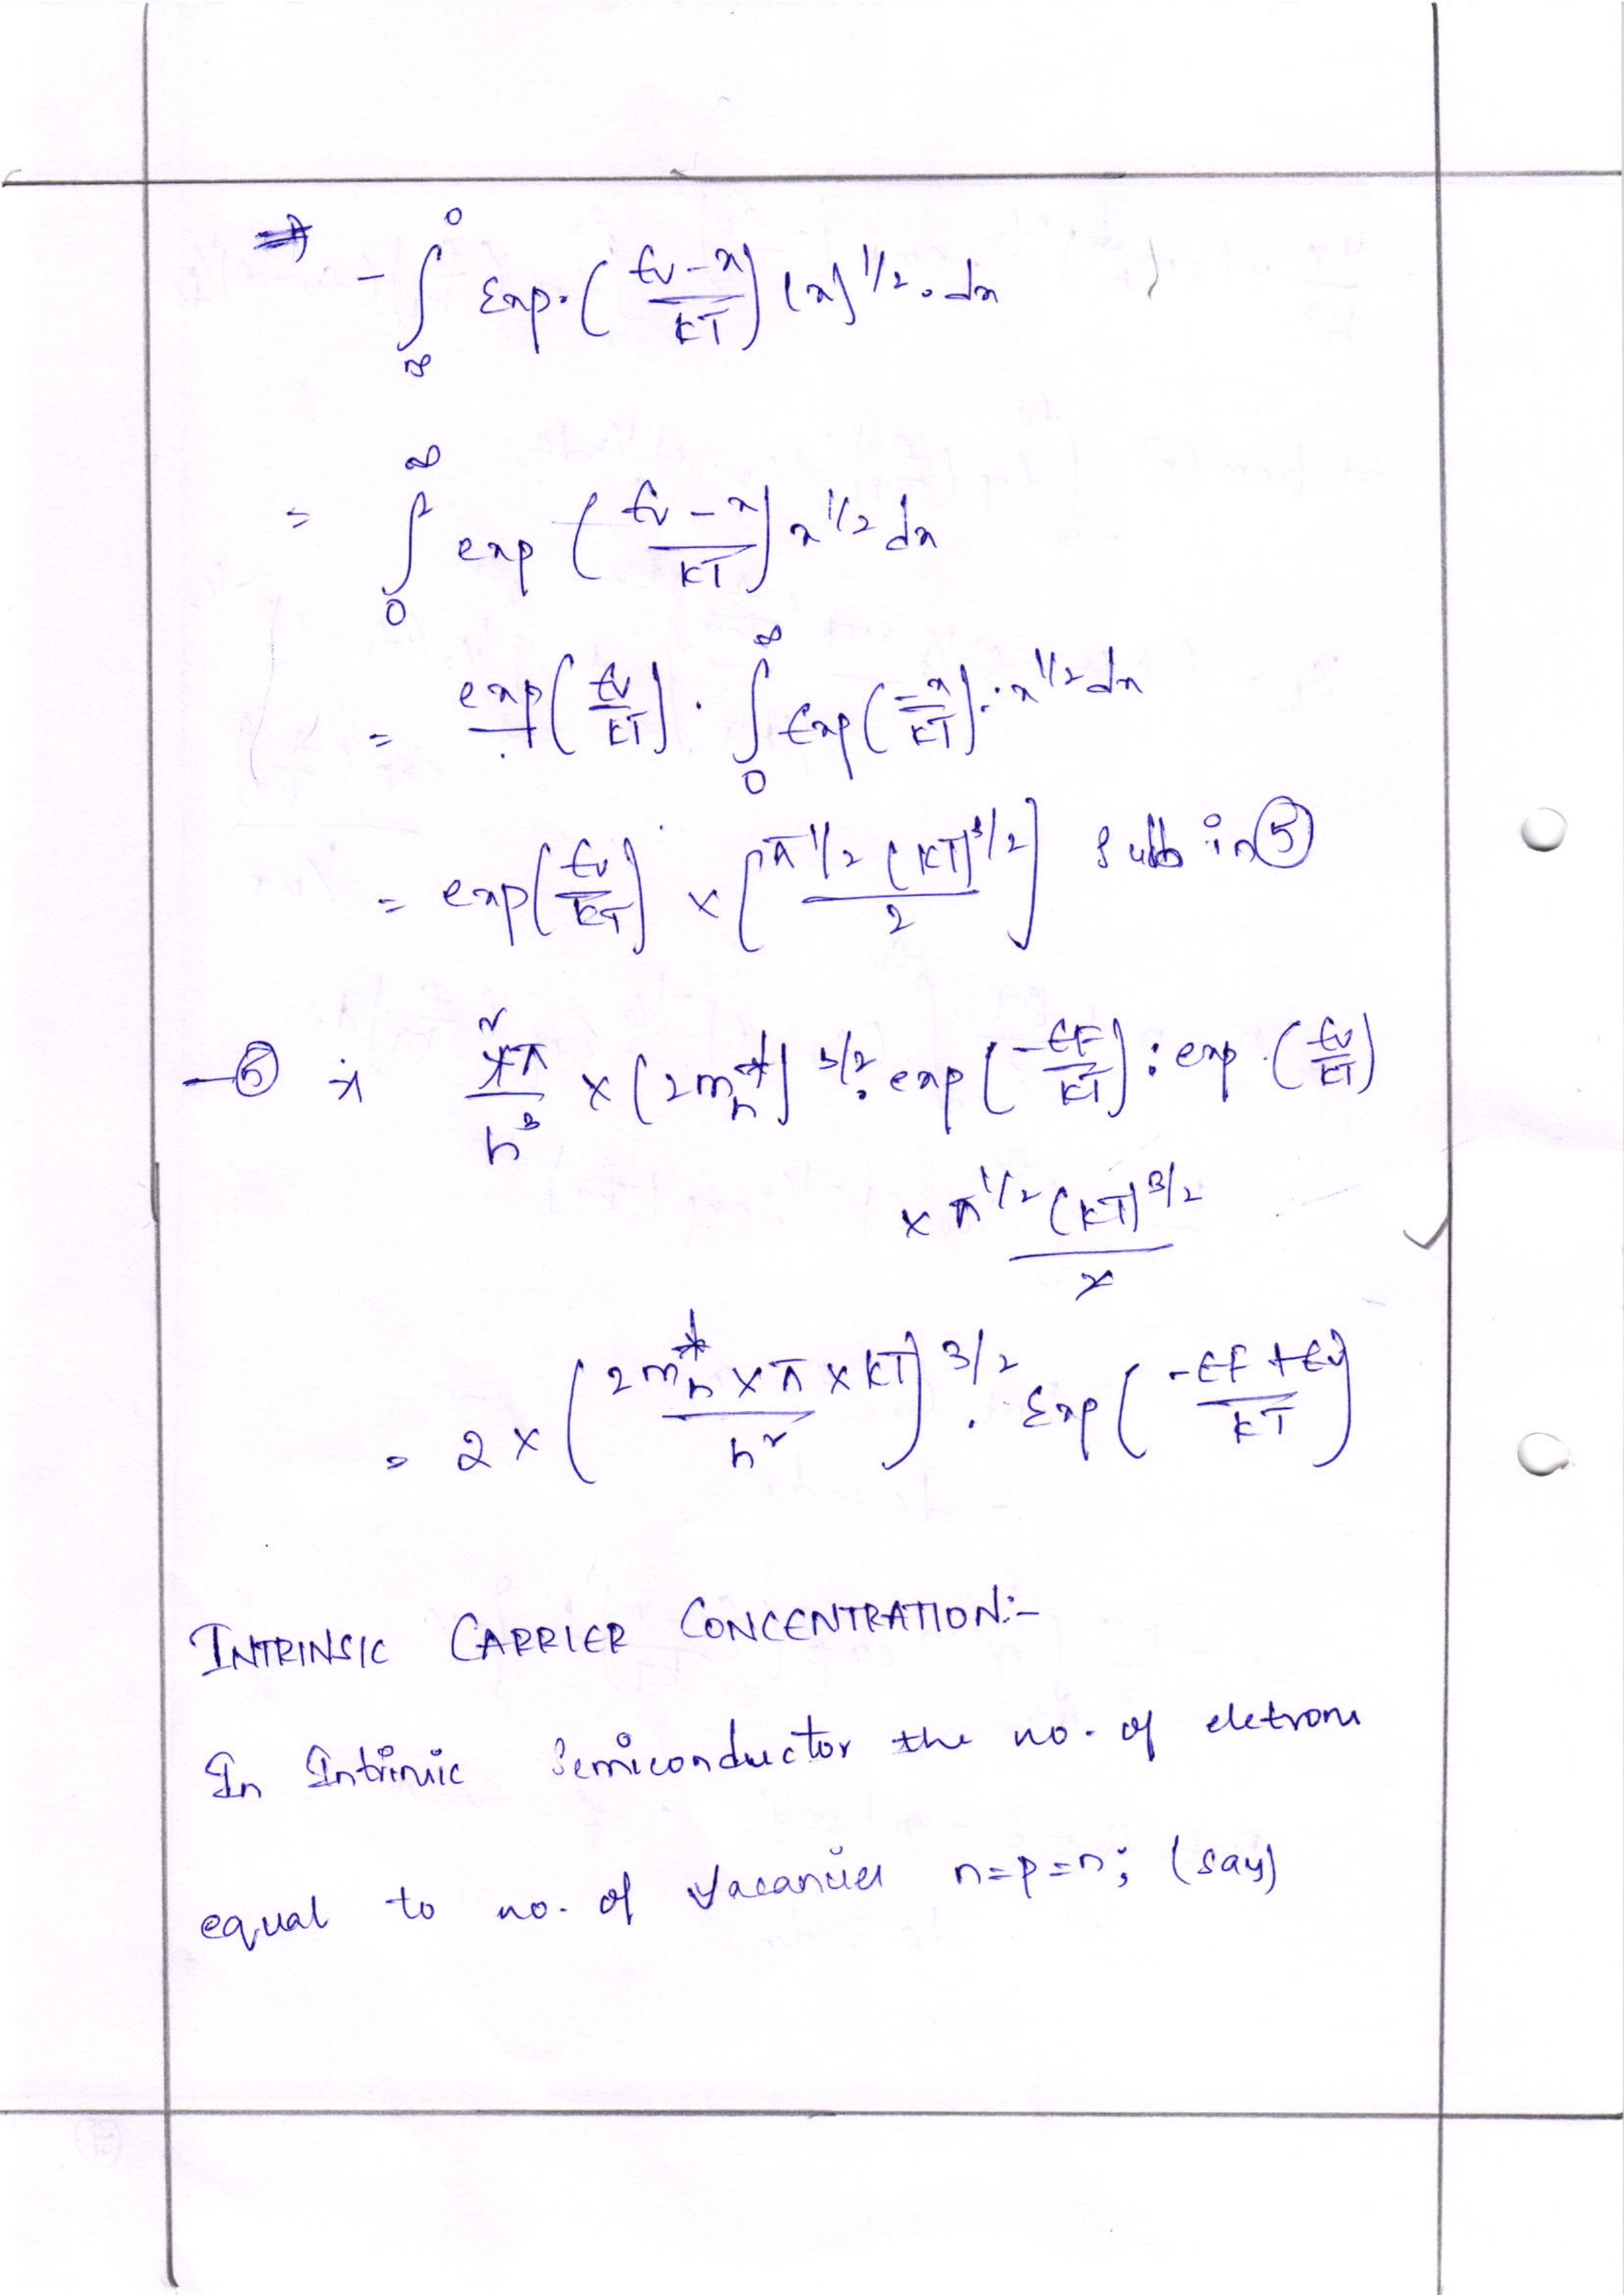 ⇒ - ∫_∞^0 Exp. ( (Ev - x)/KT ) (x)^1/2 . dx
= ∫_0^∞ exp ( (Ev - x)/KT ) x^1/2 dx
= exp ( Ev/KT ) . ∫_0^∞ Exp ( -x/KT ) . x^1/2 dx
= exp ( Ev/KT ) x [ π^1/2 (KT)^3/2 / 2 ] Sub in ⑤
- ⑤ ⇒ 4π/h^3 (4 cancelled, 2) x (2m_h^*)^3/2 . exp ( -EF/KT ) . exp ( Ev/KT )
x π^1/2 (KT)^3/2 / 2
= 2 x ( 2m_h^* x π x KT / h^2 )^3/2 . Exp ( (-EF + Ev)/KT )
INTRINSIC CARRIER CONCENTRATION:-
In Intrinsic Semiconductor the no. of eletrons
equal to no. of Vacancies n=p=ni (say)